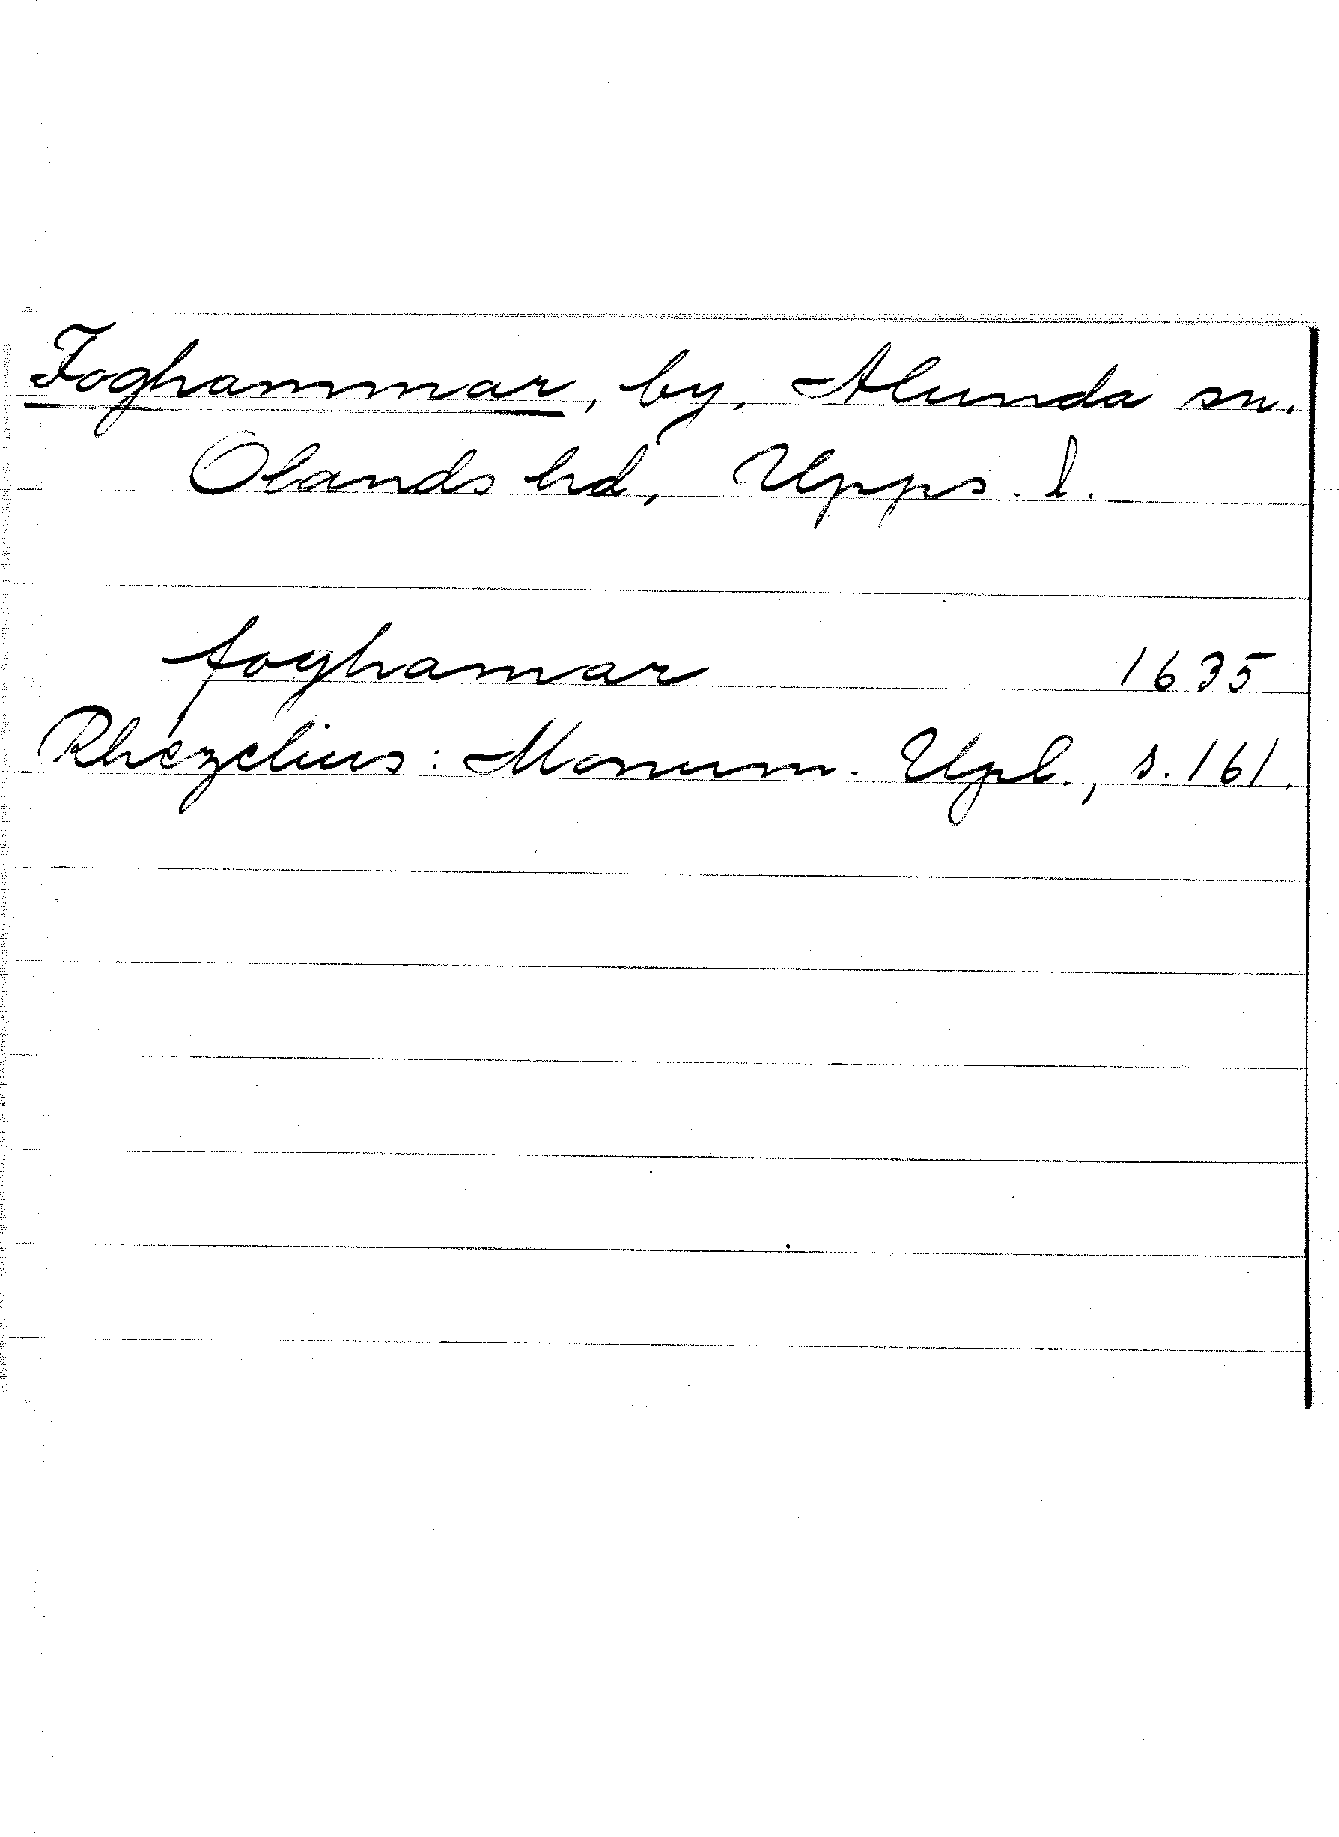 Foghammar, by, Alunda sn.
Olands hd, Upps. l.
foghamar 1635
Rhezelius: Monum. Upl., s. 161.